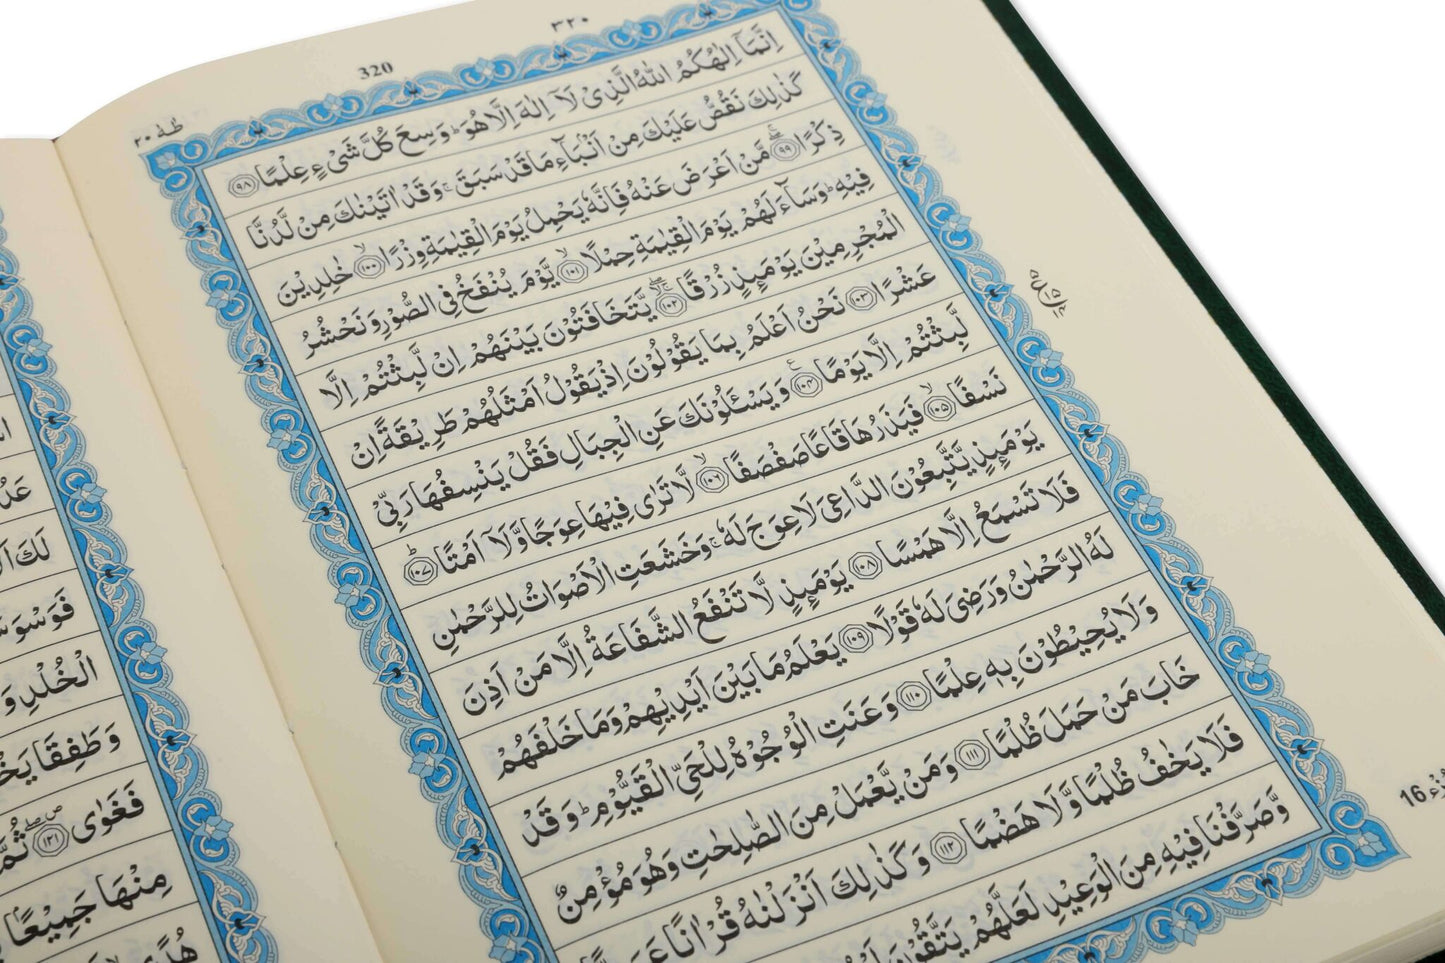 ٣٢٠
320
طٰهٰ ٢٠
اِنَّمَاۤ اِلٰهُكُمُ اللّٰهُ الَّذِیْ لَاۤ اِلٰهَ اِلَّا هُوَؕ وَسِعَ كُلَّ شَیْءٍ عِلْمًا ﴿۹۸﴾
كَذٰلِكَ نَقُصُّ عَلَیْكَ مِنْ اَنْۢبَآءِ مَا قَدْ سَبَقَۚ وَقَدْ اٰتَیْنٰكَ مِنْ لَّدُنَّا
ذِكْرًا ﴿۹۹﴾ۖۚ مَّنْ اَعْرَضَ عَنْهُ فَاِنَّهٗ یَحْمِلُ یَوْمَ الْقِیٰمَةِ وِزْرًا ﴿۱۰۰﴾ۙ خٰلِدِیْنَ
فِیْهِؕ وَسَآءَ لَهُمْ یَوْمَ الْقِیٰمَةِ حِمْلًا ﴿۱۰۱﴾ۙ یَّوْمَ یُنْفَخُ فِی الصُّوْرِ وَنَحْشُرُ
الْمُجْرِمِیْنَ یَوْمَىِٕذٍ زُرْقًا ﴿۱۰۲﴾ۚۖ یَّتَخَافَتُوْنَ بَیْنَهُمْ اِنْ لَّبِثْتُمْ اِلَّا
عَشْرًا ﴿۱۰۳﴾ نَحْنُ اَعْلَمُ بِمَا یَقُوْلُوْنَ اِذْ یَقُوْلُ اَمْثَلُهُمْ طَرِیْقَةً اِنْ
لَّبِثْتُمْ اِلَّا یَوْمًا ﴿۱۰۴﴾ۧ وَیَسْـَٔلُوْنَكَ عَنِ الْجِبَالِ فَقُلْ یَنْسِفُهَا رَبِّیْ
نَسْفًا ﴿۱۰۵﴾ۙ فَیَذَرُهَا قَاعًا صَفْصَفًا ﴿۱۰۶﴾ۙ لَّا تَرٰی فِیْهَا عِوَجًا وَّلَاۤ اَمْتًا ﴿۱۰۷﴾ؕ
یَوْمَىِٕذٍ یَّتَّبِعُوْنَ الدَّاعِیَ لَا عِوَجَ لَهٗۚ وَخَشَعَتِ الْاَصْوَاتُ لِلرَّحْمٰنِ
فَلَا تَسْمَعُ اِلَّا هَمْسًا ﴿۱۰۸﴾ یَوْمَىِٕذٍ لَّا تَنْفَعُ الشَّفَاعَةُ اِلَّا مَنْ اَذِنَ
لَهُ الرَّحْمٰنُ وَرَضِیَ لَهٗ قَوْلًا ﴿۱۰۹﴾ یَعْلَمُ مَا بَیْنَ اَیْدِیْهِمْ وَمَا خَلْفَهُمْ
وَلَا یُحِیْطُوْنَ بِهٖ عِلْمًا ﴿۱۱۰﴾ وَعَنَتِ الْوُجُوْهُ لِلْحَیِّ الْقَیُّوْمِؕ وَقَدْ
خَابَ مَنْ حَمَلَ ظُلْمًا ﴿۱۱۱﴾ وَمَنْ یَّعْمَلْ مِنَ الصّٰلِحٰتِ وَهُوَ مُؤْمِنٌ
فَلَا یَخٰفُ ظُلْمًا وَّلَا هَضْمًا ﴿۱۱۲﴾ وَكَذٰلِكَ اَنْزَلْنٰهُ قُرْاٰنًا
وَّصَرَّفْنَا فِیْهِ مِنَ الْوَعِیْدِ لَعَلَّهُمْ یَتَّقُوْنَ
16
لَكَ
الْخُلْدِ وَ
وَطَفِقَا
فَغَوٰی ﴿۱۲۱﴾ ثُمَّ
مِنْهَا جَمِیْعًا
هُدًی